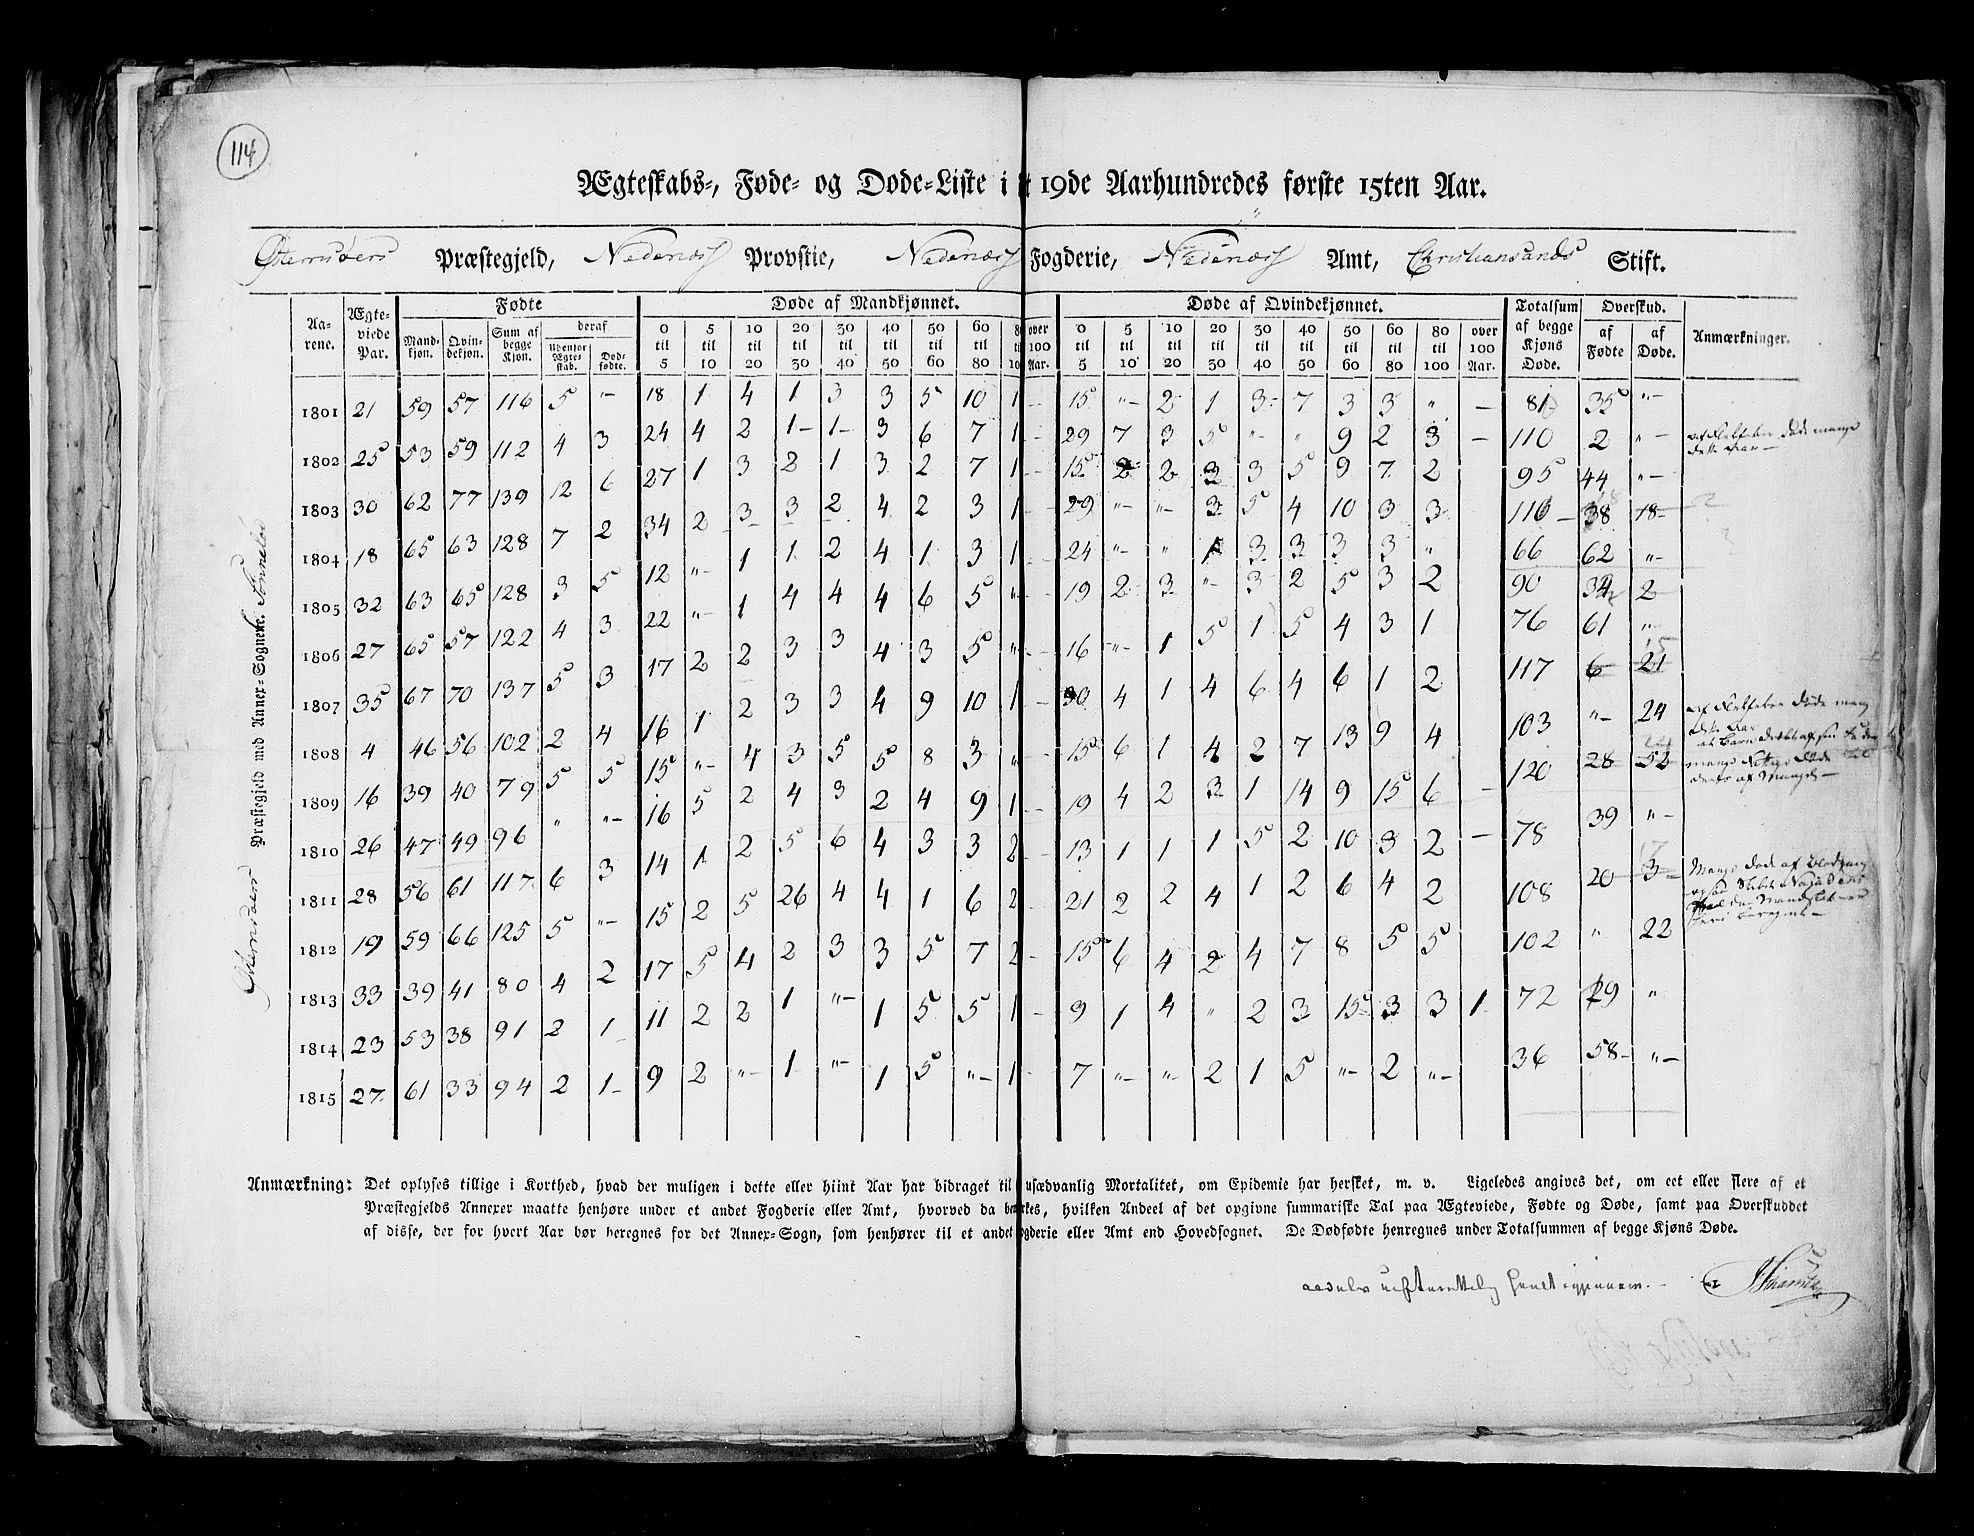 114
Ægteskabs-, Føde- og Døde-Liste i 19de Aarhundredes første 15ten Aar.
Østerrisøers Præstegjeld, Nedenæs Provstie, Nedenæs Fogderie, Nedenæs Amt, Christiansands Stift.
Østerrisøers Præstegjeld med Annex-Sognene. Søndeløv
Aarene. Ægteviede Par. Fødte Døde af Mandkjønnet. Døde af Qvindekjønnet. Totalsum af begge Kjøns Døde. Overskud. Anmærkninger.
Mandkjøn. Qvindekjøn. Sum af begge Kjøn. deraf udenfor Ægteskab. Dødfødte. 0 til 5 5 til 10 10 til 20 20 til 30 30 til 40 40 til 50 50 til 60 60 til 80 over 100 Aar. 0 til 5 5 til 10 10 til 20 20 til 30 30 til 40 40 til 50 50 til 60 60 til 80 80 til 100 over 100 Aar. af Fødte af Døde.
1801 21 59 57 116 5 "- 18 1 4 1 3 3 5 10 1 - 15 "- 2 1 3 7 3 3 " - 81 35 "-
1802 25 53 59 112 4 3 24 4 2 1 1 3 6 7 1 - 29 7 3 5 "- " 9 2 3 - 110 2 "- dette Aar
1803 30 62 77 139 12 6 27 1 3 2 1 3 2 7 1 - 15 2 2 3 3 5 9 7 2 95 44 "-
1804 18 65 63 128 7 2 34 2 3 3 2 4 2 3 1 - 29 "- "- 3 5 4 10 3 3 116 38 18
1805 32 63 65 128 3 5 12 "- 1 1 2 4 1 3 1 - 24 "- " 1 3 3 3 3 " 66 62 "-
1806 27 65 57 122 4 3 22 "- 1 4 4 4 6 5 "- 19 2 3 "- 3 2 5 3 2 90 34 2
1807 35 67 70 137 5 3 17 2 2 3 3 4 3 5 "- 16 "- 1 5 1 5 4 3 1 76 61 "-
1808 4 46 56 102 2 4 16 1 2 3 3 4 9 10 1 - 30 4 1 4 6 4 6 1 2 117 6 21
1809 16 39 40 79 5 5 15 "- 4 3 5 5 8 3 " 15 6 1 4 2 7 13 9 4 103 "- 24
1810 26 47 49 96 " "- 16 5 2 4 3 2 4 9 1 - 19 4 2 3 1 14 9 15 6 - 120 28 52
1811 28 56 61 117 6 3 14 1 2 5 6 4 3 3 2 - 13 1 1 1 5 2 10 3 2 - 78 39 "-
1812 19 59 66 125 5 "- 15 2 5 26 4 4 1 6 2 - 21 2 2 4 1 2 6 4 2 108 20 3
1813 33 39 41 80 4 2 17 5 4 2 3 3 5 7 2 - 15 6 4 2 4 7 8 5 5 102 " 22
1814 23 53 38 91 2 1 11 2 2 1 "- 1 5 5 1 - 9 1 4 " 2 3 15 3 3 1 72 19 "
1815 27 61 33 94 2 1 9 2 "- 1 "- 1 5 "- 1 - 7 "- "- 2 1 5 "- 2 "- 36 58 "-
Anmærkning: Det oplyses tillige i Korthed, hvad der muligen i dette eller hiint Aar har bidraget til usædvanlig Mortalitet, om Epidemie har hersket, m. v. Ligeledes angives det, om eet eller flere af et
Præstegjelds Annexer maatte henhøre under et andet Fogderie eller Amt, hvorved da hvilken Andeel af det opgivne summariske Tal paa Ægteviede, Fødte og Døde, samt paa Overskuddet
af disse, der for hvert Aar bør beregnes for det Annex-Sogn, som henhører til et andet eller Amt end Hovedsognet. De Dødfødte henregnes under Totalsummen af begge Kjøns Døde.